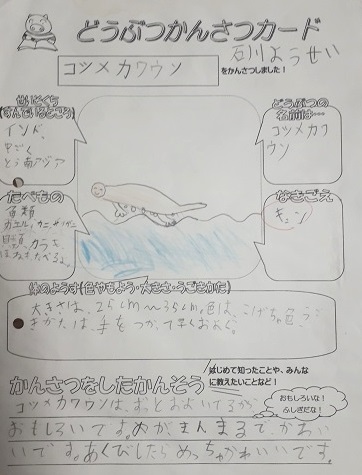 どうぶつかんさつカード
石川ようせい
コツメカワウソ
をかんさつしました!
せいそくち
(すんでいるところ)
インド、
中ごく
とう南アジア
どうぶつの
名前は…
コツメカワ
ウソ
たべもの
魚類
カエル、カニ、
貝類 カラも
なきごえ
キュン
体のようす(色やもよう・大きさ・うごきかた)
大きさは、
色は、こげちゃ色 う
ごきかたは、手をつかって
はじめて知ったことや、みんな
に教えたいことなど!
かんさつをしたかんそう
おもしろいな!
ふしぎだな!
コツメカワウソは、ずっとおよいでるから
おもしろいです。めが、まんまるでかわい
いです。あくびしたらめっちゃかわいいです。